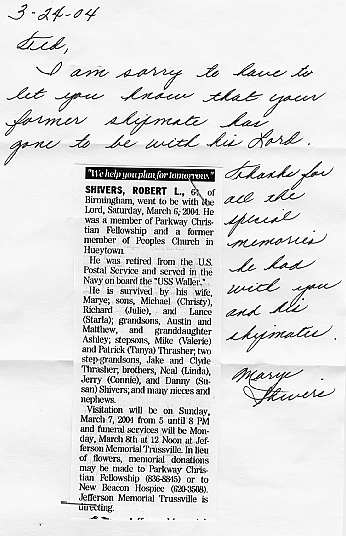 3-24-04
Ted,
I am sorry to have to
let you know that your
former shipmate has
gone to be with his Lord.
"We help you plan for tomorrow."
SHIVERS, ROBERT L., of
Birmingham, went to be with the
Lord, Saturday, March 6, 2004. He
was a member of Parkway Chris-
tian Fellowship and a former
member of Peoples Church in
Hueytown.
He was retired from the U.S.
Postal Service and served in the
Navy on board the "USS Waller."
He is survived by his wife,
Marye; sons, Michael (Christy),
Richard (Julie), and Lance
(Starla); grandsons, Austin and
Matthew, and granddaughter
Ashley; stepsons, Mike (Valerie)
and Patrick (Tanya) Thrasher; two
step-grandsons, Jake and Clyde
Thrasher; brothers, Neal (Linda),
Jerry (Connie), and Danny (Su-
san) Shivers; and many nieces and
nephews.
Visitation will be on Sunday,
March 7, 2004 from 5 until 8 PM
and funeral services will be Mon-
day, March 8th at 12 Noon at Jef-
ferson Memorial Trussville. In lieu
of flowers, memorial donations
may be made to Parkway Chris-
tian Fellowship (836-8845) or to
New Beacon Hospice (620-3508).
Jefferson Memorial Trussville is
directing.
Thanks for
all the
special
memories
he had
with you
and his
shipmates.
Marye
Shivers